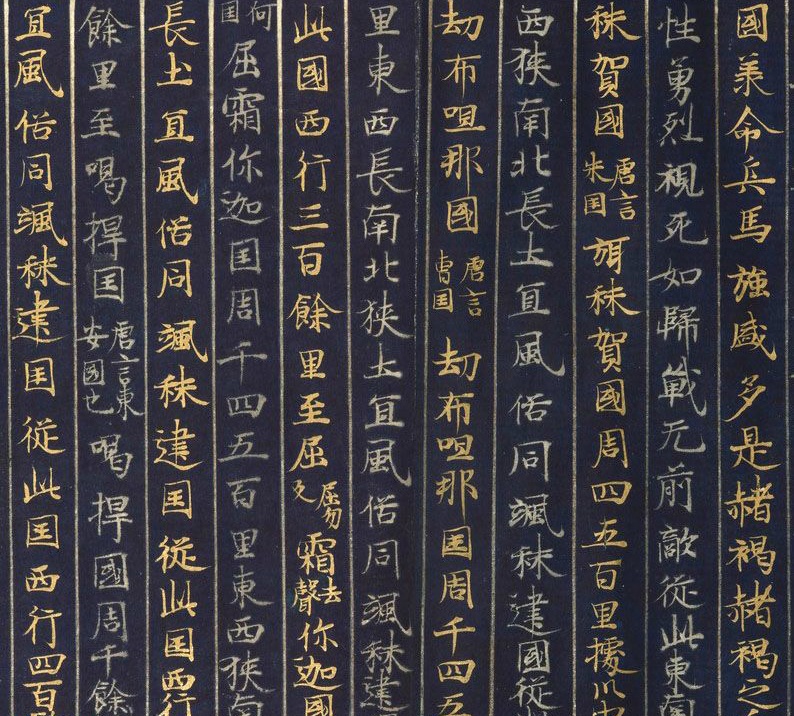 國承命兵馬強盛多是赭褐赭褐之
性勇烈視死如歸戰无前敵從此東南
秣賀國唐言朱国弭秣賀國周四五百里據川中
西狹南北長土宜風俗同颯秣建國從此
劫布呾那國唐言曹国劫布呾那国周千四五
里東西長南北狹土宜風俗同颯秣建
此國西行三百餘里至屈屈勿反霜去聲你迦國
何国屈霜你迦国周千四五百里東西狹南
長土宜風俗同颯秣建国從此国西行
餘里至喝捍国唐言東安國也喝捍國周千餘
宜風俗同颯秣建国從此国西行四百